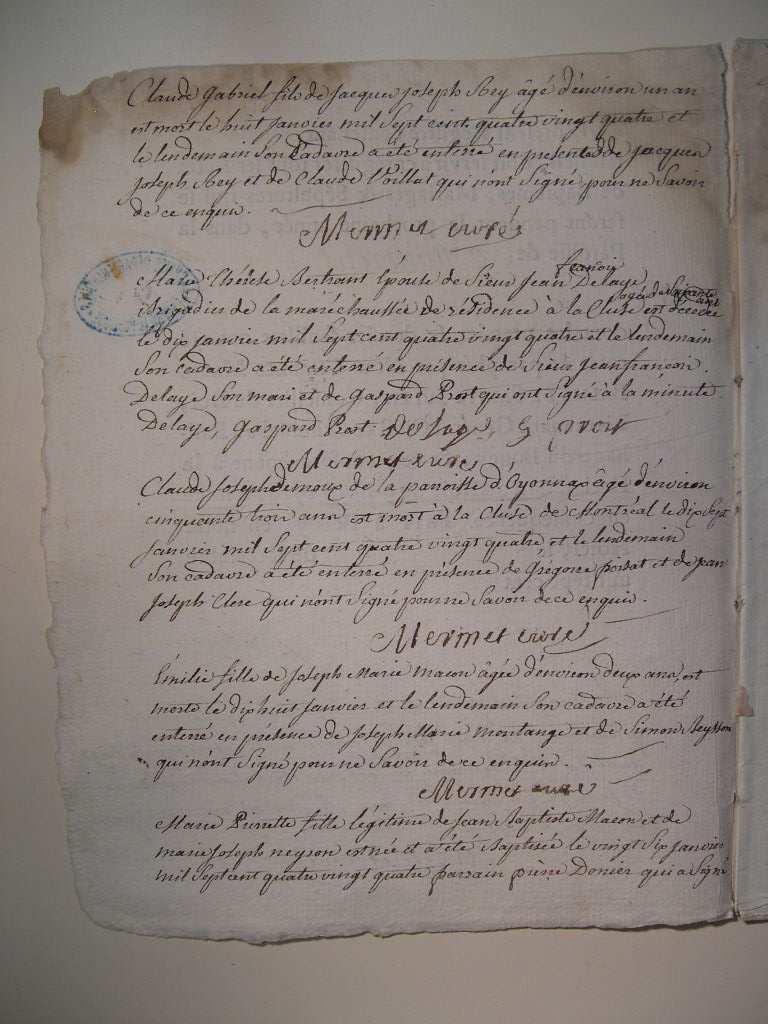 Claude Gabriel fils de Jacque Joseph Rey âgé d'énviron un an
est mort le huit Janvier mil Sept cent quatre vingt quatre et
le lendemain Son Cadavre a été enterré en presence de Jacque
Joseph Rey et de Claude qui n'ont Signé pour ne Savoir
de ce enquis.
Mermet curé
françois
Marie Thérèse Bertrant Épouse de Sieur Jean Delaye,
agée de Soixante ans
Brigadier de la maréchaussée de résidence à la Cluse est décédée
le dix janvier mil Sept cent quatre vingt quatre et le lendemain
Son cadavre a été enterré en présence de Sieur Jean françois
Delaye Son mari et de Gaspard Prost qui ont Signé à la minute
Delaye, Gaspard Prost. Delaye, g prost
Mermet curé
Claude Joseph demoux de la paroisse d'Oyonnax âgé d'énviron
cinquante trois ans est mort à la Cluse de Montréal le dix Sept
Janvier mil Sept cent quatre vingt quatre et le lendemain
Son cadavre a été enterré en présence de Grégoire poisat et de jean
Joseph Clerc qui n'ont Signé pour ne Savoir de ce enquis.
Mermet curé
Émilie fille de Joseph Marie macon âgée d'énviron deux ans, est
morte le dix huit Janvier et le lendemain Son cadavre a été
enterré en présence de Joseph Marie montange et de Simon Reysson
qui n'ont Signé pour ne Savoir de ce enquis.
Mermet curé
Marie Pierrette fille légitime de Jean Baptiste Macon et de
marie Joseph neyson est née et a été Baptisée le vingt Six janvier
mil Sept cent quatre vingt quatre parrain pierre Donier qui a Signé